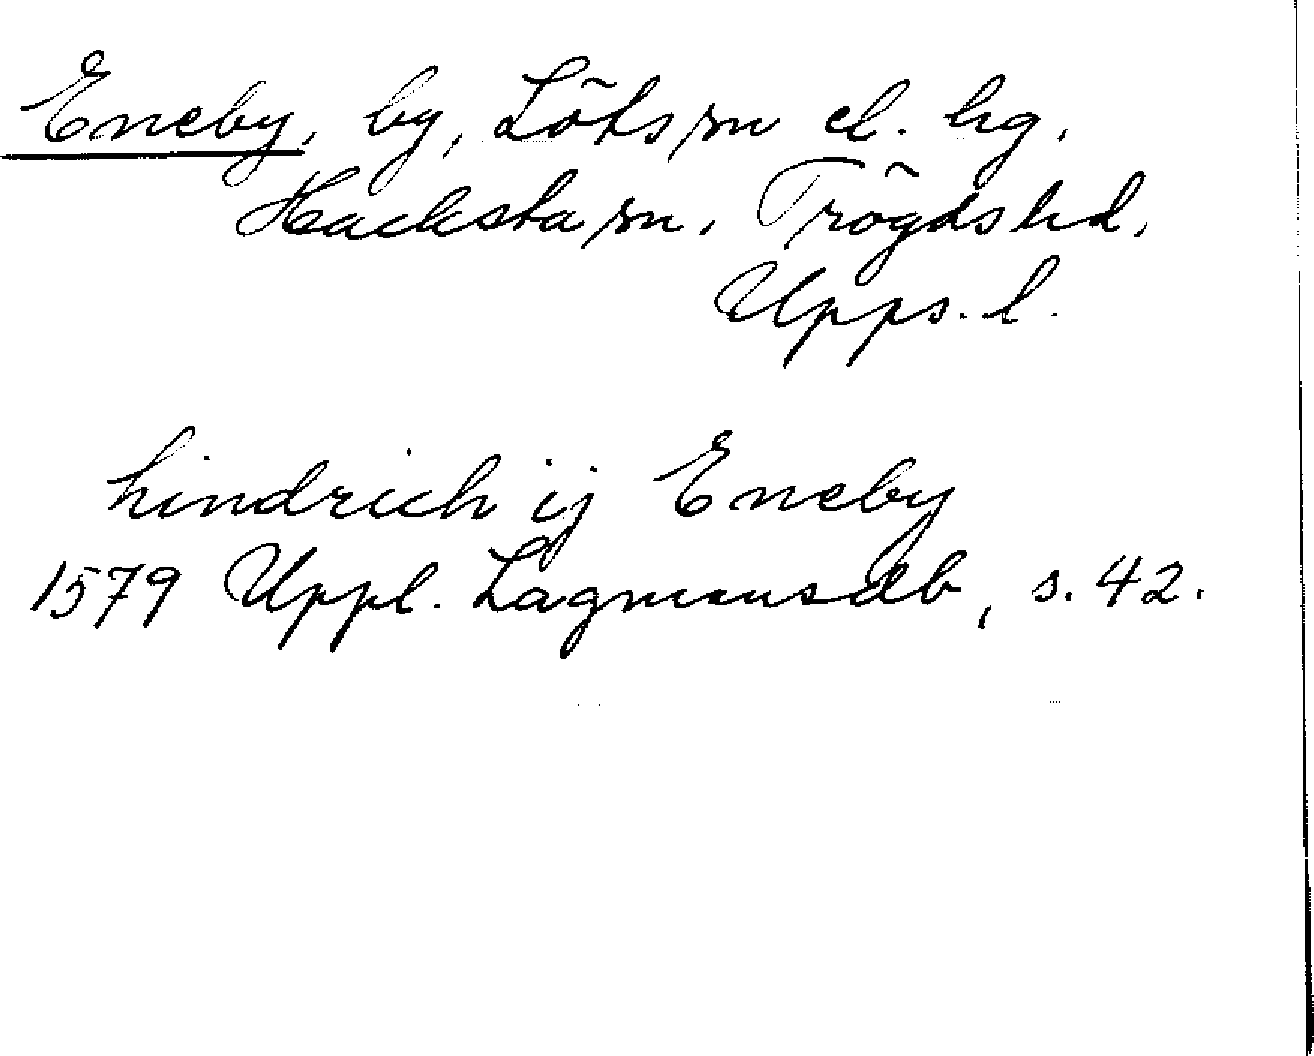 Eneby, by, Löts sn el. hg,
Hacksta sn, Trögds hd,
Upps. l.
hindrich ij Eneby
1579 Uppl. Lagmansdb, s. 42.